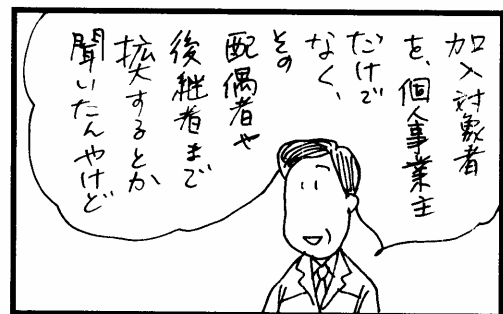 加入対象者
を、個人事業主
だけで
なく、
その
配偶者や
後継者まで
拡大するとか
聞いたんやけど